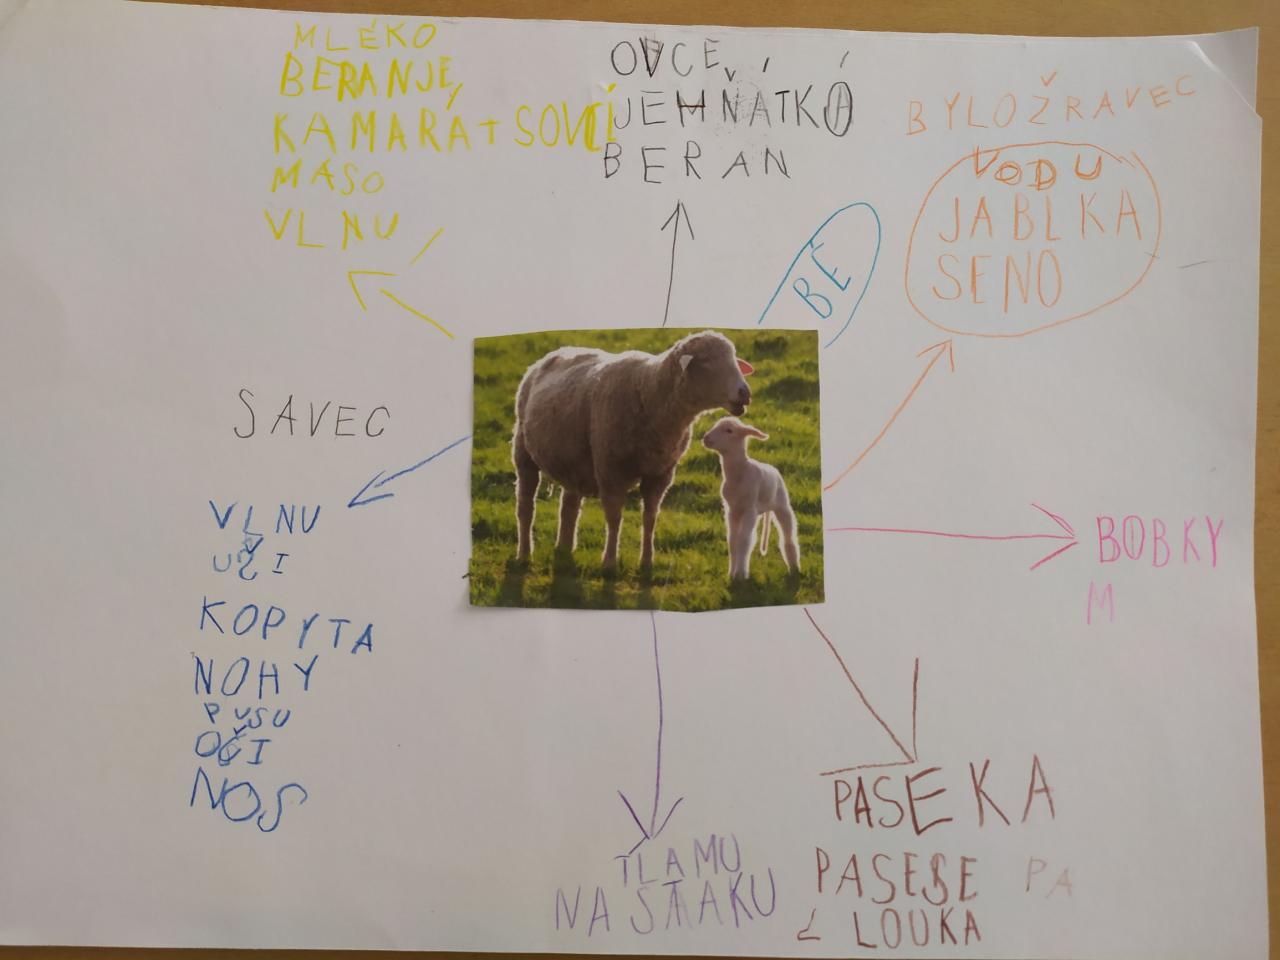 MLÉKO
BERANJE,
KAMARÁT SOVCÍ
MASO
VLNU
OVCE,
JEHŇÁTKO
BERAN
BÉ
BYLOŽRAVEC
VODU
JABLKA
SENO
SAVEC
VLNU
UŠI
KOPYTA
NOHY
PUSU
OČI
NOS
BOBKY
M
TLAMU
PASEKA
PASESE PA
LOUKA